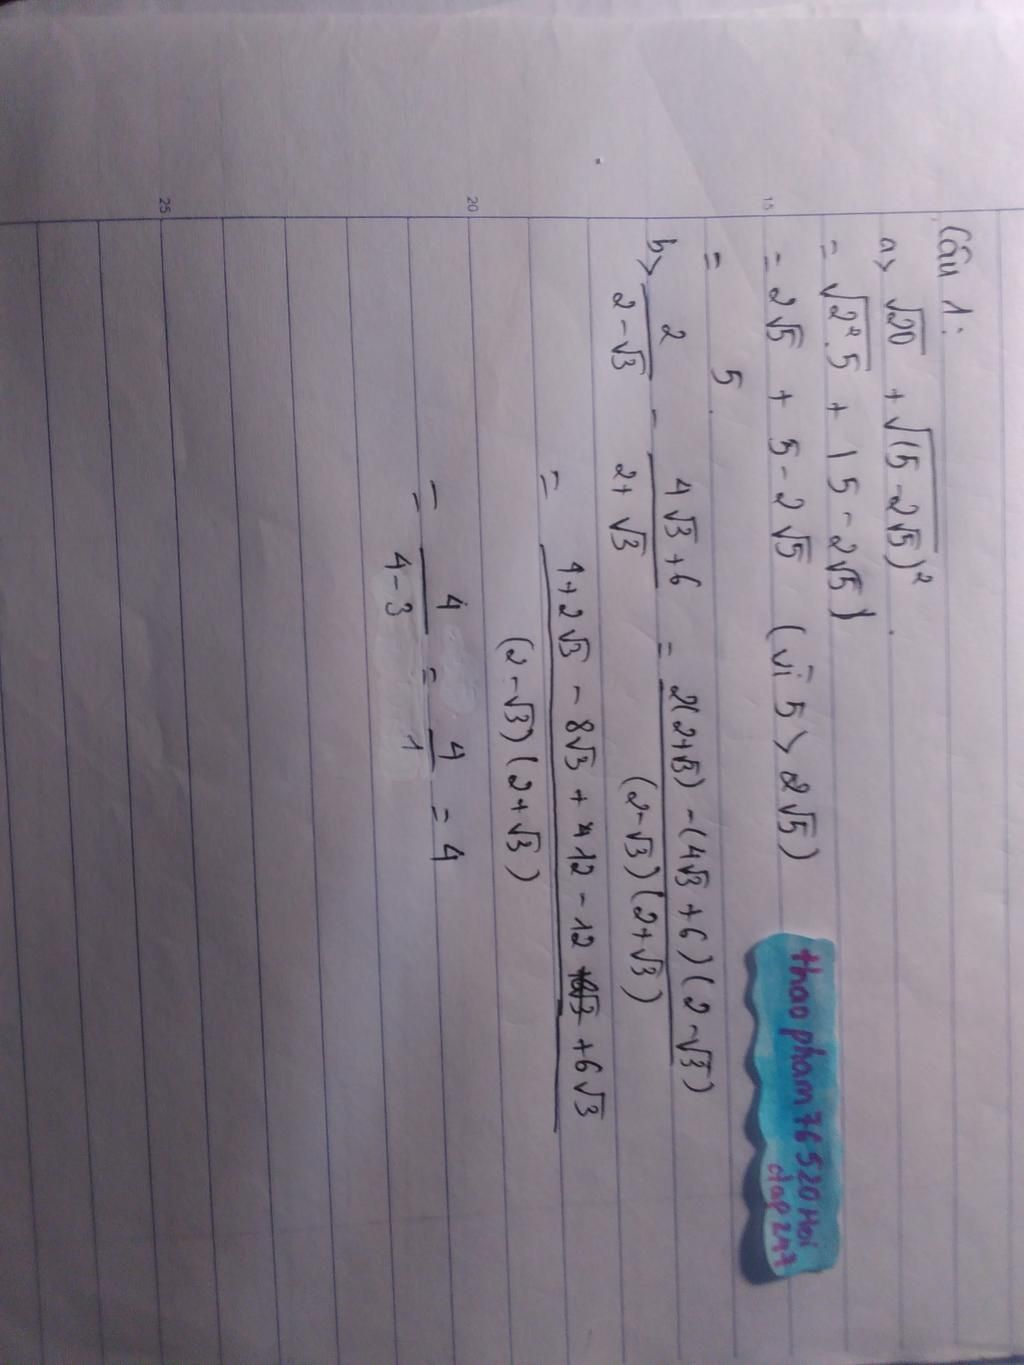 Câu 1:
a> √20 + √(5 - 2√5)²
= √2².5 + |5 - 2√5|
= 2√5 + 5 - 2√5 (vì 5 > 2√5)
= 5
b> 2/(2-√3) - (4√3+6)/(2+√3) = (2(2+√3) - (4√3+6)(2-√3))/((2-√3)(2+√3))
= (4+2√3 - 8√3 + 12 - 12 + 6√3)/((2-√3)(2+√3))
= 4/(4-3) = 4/1 = 4
thao pham 76520 Hoi
dap 247
15
20
25